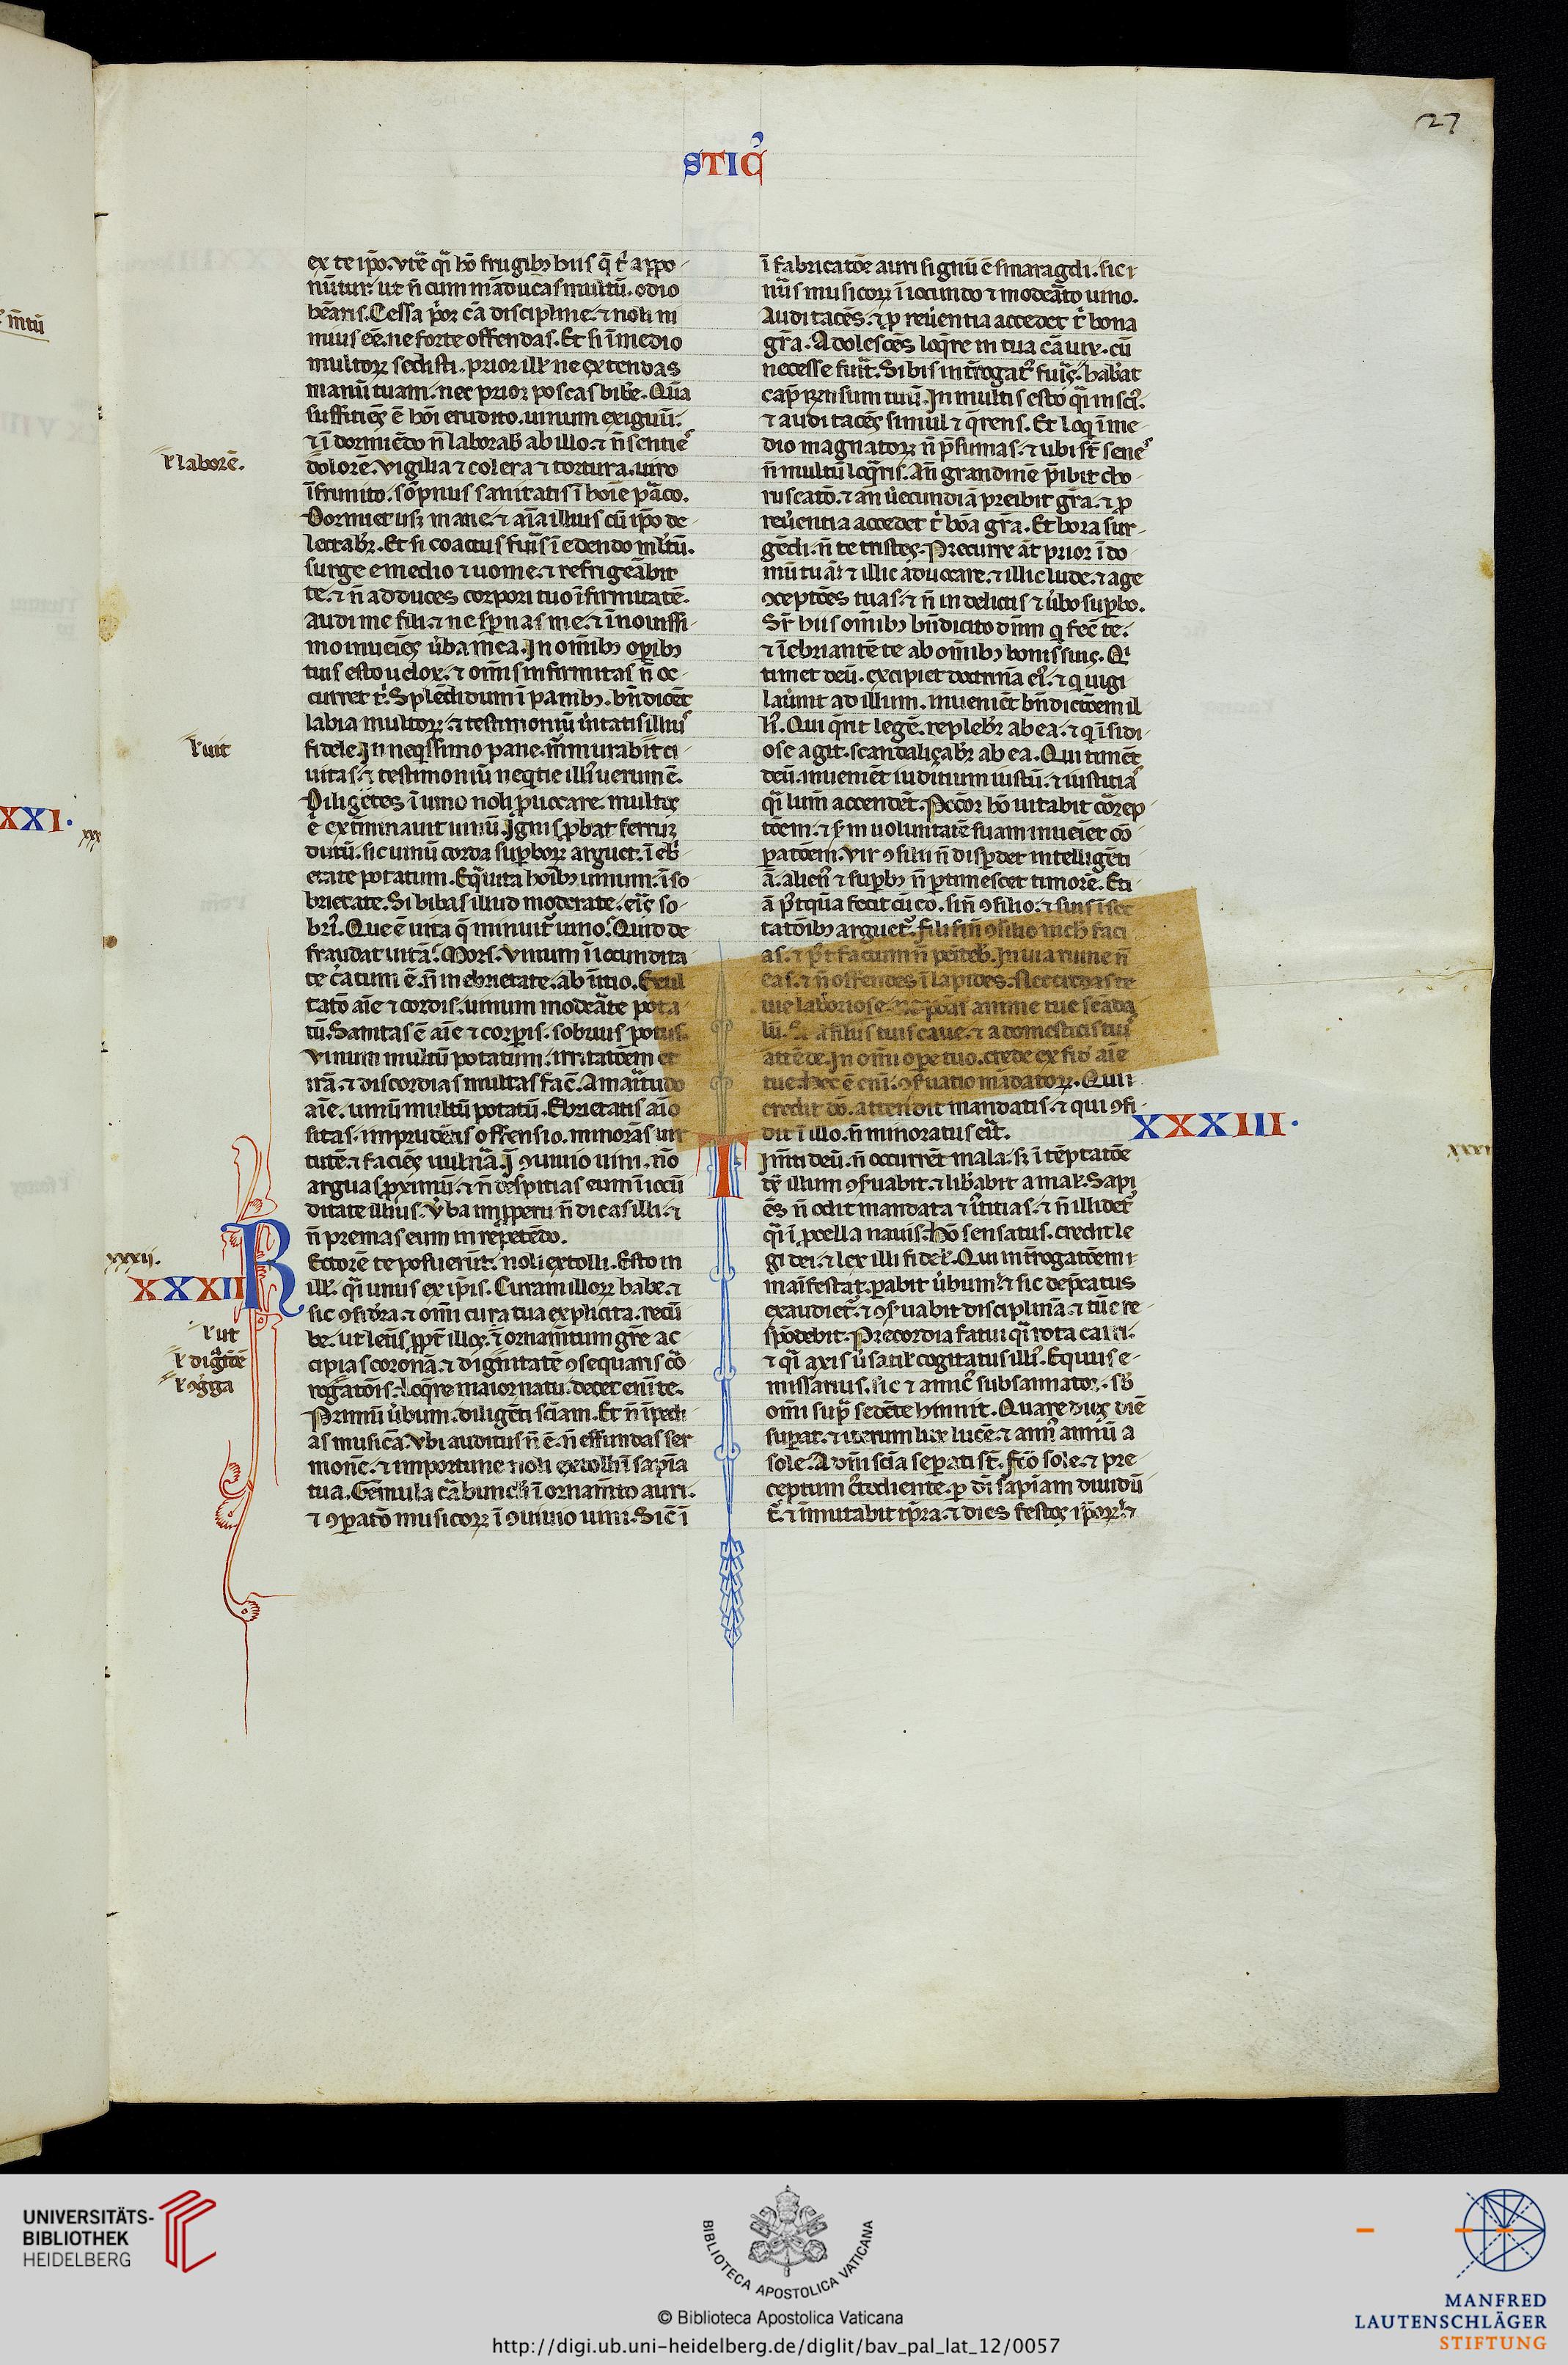 27
STIC᷒
ex te ip̄o. vtē q̄ı hō frugıbꝫ hiis q̄ t̄ appo-
nūtur. ut n̄ cum māducas multū. odio
beāris. Cessa p̄or cā discipline. ⁊ noli ni
mius eē. ne forte offendas. Et si ī medio
multorꝝ sedisti. prior illꝭ ne extendas
manū tuam. nec prior poscas bibe͛. Qūa
sufficiēs ē hōi erudito. uinum exiguū.
⁊ ī dormiēdo n̄ laborab̄ ab illo. ⁊ n̄ senties
dolorē. vigilia ⁊ colera ⁊ tortura. uiro
īfrunito. sōpnus sanitatis ī hoīe parco.
Dormiet usqꝫ mane. ⁊ aīa illius cū ip̄o de-
lectabr̄. Et si coactus fuīs ī edendo ml̄tū.
surge e medio ⁊ uome. ⁊ refrigeābit
te. ⁊ n̄ adduces corpori tuo īfirmitatē.
Audi me fili. ⁊ ne sꝑnas me. ⁊ ī nouissi-
mo inueīes ūba mea. In om̄ibꝫ oꝑibꝫ
tuis esto uelox. ⁊ om̄is infirmitas n̄ oc-
curret t̄. Splēdidum ī panibꝫ. bn̄dicēt
labia multorꝝ. ⁊ testimoniū ūitatis illius
fidele. In neqissimo pane. m̄murabit ci
uitas. ⁊ testimoniū neqtie illī uerum ē.
Diligētes ī uino noli ꝓuocare. multos
ē exīminauit uinū. Ignis ꝓbat ferrum
durū. sic uinū corda suꝑborꝝ arguet. ī eb̄
etate potatum. Eqa uita hoībꝫ uinum. ī so
brietate. Si bibas illud moderate. eīs so-
bri᷒. Que ē uita q̄ minuit᷑ uino. Quid de
fraudat uitā. Mors. Vinum ī iocundita
te c͛atum ē. n̄ in ebrietate. ab īitio. Exul
tatō aīe ⁊ cordis. uinum modeāte pota
tū. Sanitas ē aīe ⁊ corꝑis. sobrius potus.
Vinum multū potatum. irritatōem et
irā. ⁊ discordias multas fac̄. Amaītudo
aīe. uinū multū potatū. Ebrietatis aīo
sitas. imprudētis offensio. minorās uir
tutē ⁊ faciēs uulnā. In ꝯuiuio uini. nō
arguas ꝓximū. ⁊ n̄ despicias eum ī iocū
ditate illius. v̄ba impꝓerii n̄ dicas illi. ⁊
n̄ premas eum in repetēdo.
Rectorē te posuerūt. noli extolli. Esto in
illꝭ. q̄ı unus ex ip̄is. Curam illorꝝ habe. ⁊
sic ꝯsidera. ⁊ om̄i cura tua explicita. recū
be. ut leteīs ꝓpt̄ illos. ⁊ ornam̄tum grē ac-
cipias coronā. ⁊ dignitatē ꝯsequaris co͛
rogatōnis. Loq̄re maior natu. decet enī te.
Primū ūbum. diligēti sciam. Et n̄ īpedi
as musicā. Vbi auditus n̄ ē. n̄ effundas ser
monē. ⁊ importune noli extolli ī sapīa
tua. Gēmula carbuncli ī ornam̄to auri.
⁊ ꝯꝑatō musicorꝝ ī ꝯuiuio uini. Sic ī
ī fabricatōe auri signū ē smaragdi. sic ı
nūs musicorꝝ ī iocundo ⁊ modeāto uino.
Audi tacēs. ⁊ ꝓ reūentia accedet t̄ bona
grā. Adolescēs loq̄re in tua cā uix. cū
necesse fuīt. Si bis int̄rogat᷑ fuīs. habeat
cap̄ r̄nsum tuū. In multis esto q̄ı insci᷒.
⁊ audi tacēs simul ⁊ q̄rens. Et loq̄ ī me
dio magnatorꝝ n̄ p̄sumas. ⁊ ubi st̄ senes
n̄ multū loq̄ris. An̄ grandinē p̄ibit cho
ruscatō. ⁊ an̄ ūecundiā preibit grā. ⁊ ꝓ
reūentia accedet t̄ bōa grā. Et hora sur-
gēdi. n̄ te tristes. Precurre āt prior ī do
mū tuā. ⁊ illic aduocare. ⁊ illic lude. ⁊ age
ꝯceptōes tuas. ⁊ n̄ in delictis ⁊ ūbo suꝑbo.
Sr̄ hiis om̄ibꝫ bn̄dicito dn̄m q fec̄ te.
⁊ īebriantē te ab om̄ibꝫ bonis suis. Qi
timet deū. excipiet doctrinā ei᷒. ⁊ q uigi
lauīnt ad illum. inueniēt bn̄dictōem il
li᷒. Qui q̄rit legē. replebr̄ ab ea. ⁊ q īsidi-
ose agit. scandaliçabr̄ ab ea. Qui timēt
deū. inueniēt iuditium iustū. ⁊ iustitias
q̄ı lum̄ accendēt. Pccōr hō uitabit cōrep
tōem. ⁊ s̄m uoluntatē suam inueniet cō
ꝑatōem. Vir ꝯsilii n̄ disꝑdet intelligēti
ā. alien᷒ ⁊ suꝑbꝫ n̄ ꝑtimescet timorē. Eti
ā p᷒tqūa fecit cū eo. sin̄ ꝯsilio. ⁊ suis īsec
tatōibꝫ arguet᷑. Fili sin̄ ꝯsilio nichil faci
as. ⁊ p᷒t factum n̄ peniteb̄. In uia ruine n̄
eas. ⁊ n̄ offendes ī lapides. Nec credas te
uie laboriose. ne ponas anime tue scāda
lū. Et a filiis tuis caue. ⁊ a domesticis tuis
attēde. In omī oꝑe tuo. crede ex fid̄ aīe
tue. Hec ē enī. ꝯs̄uatio mādatorꝝ. Qui
credit dō. attendit mandatis. ⁊ qui ꝯfi
dit ī illo. n̄ minoratus eīt.
XXXIII.
Timēti deū. n̄ occurrēt mala. sꝫ ī tēptatōe
dꝰ illum ꝯs̄uabit. ⁊ lib̄abit a malꝭ. Sapi
ēs n̄ odit mandata ⁊ iustitias. ⁊ n̄ illidet᷑
q̄ı ī ꝓcella nauis. Hō sensatus. credit le
gi dei. ⁊ lex illi fidelꝭ. Qui int̄rogatōem
manifestat. ꝑabit ūbum. ⁊ sic dep̄catus
exaudiet᷑. ⁊ ꝯs̄uabit disciplinā. ⁊ tūc re-
spōdebit. Precordia fatui q̄ı rota carri.
⁊ q̄ı axis ūsatilꝭ cogitatus illi᷒. Equus e-
missarius. sic ⁊ amic᷒ subsannator. sb̄
om̄i supra sedēte hinnit. Quare dies diē
suꝑat. ⁊ iterum lux lucē. ⁊ ann᷒ annū a
sole. A dn̄i scīa separati st̄. fcō sole. ⁊ pre
ceptum c᷒todiente. ꝑ dn̄i sapīam diuidū
t᷑. ⁊ īmutabit tꝑra. ⁊ dies festos ip̄orꝝ. ⁊
ł laborē.
ł uit
XXI.
xxxii.
XXXII
ł ut
ł dignītē
ł ꝯg̃ga
UNIVERSITÄTS-
BIBLIOTHEK
HEIDELBERG
BIBLIOTECA APOSTOLICA VATICANA
© Biblioteca Apostolica Vaticana
http://digi.ub.uni-heidelberg.de/diglit/bav_pal_lat_12/0057
MANFRED
LAUTENSCHLÄGER
STIFTUNG